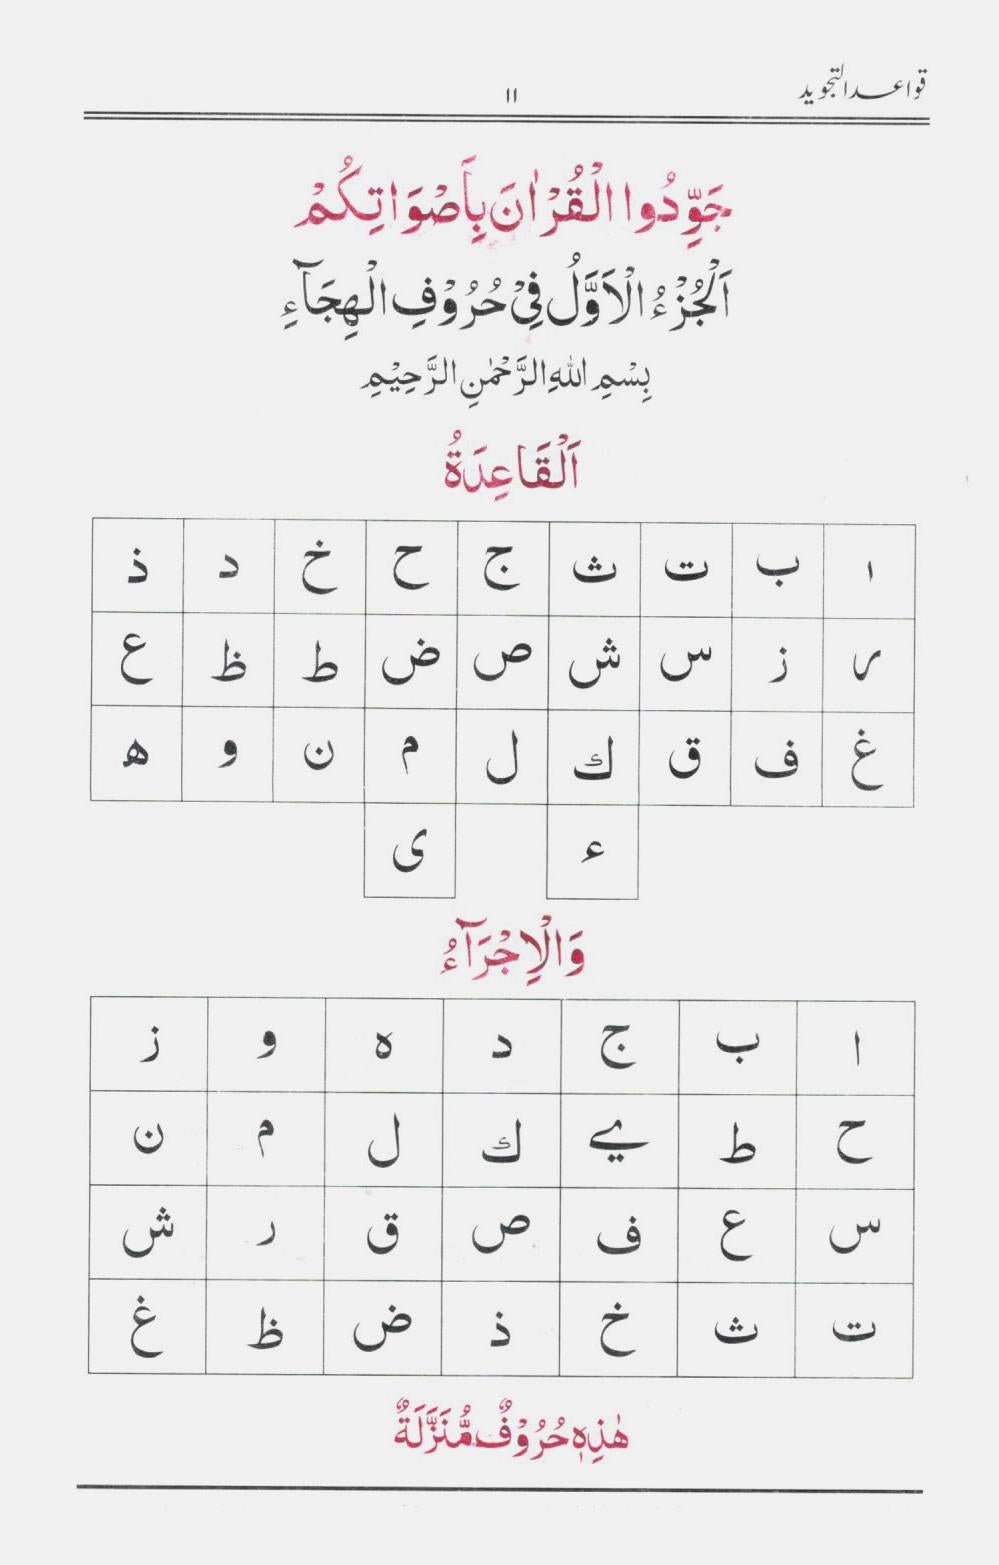 قواعد التجويد
١١
جَوِّدُوا الْقُرْاٰنَ بِاَصْوَاتِكُمْ
اَلْجُزْءُ الْاَوَّلُ فِيْ حُرُوْفِ الْهِجَآءِ
بِسْمِ اللهِ الرَّحْمٰنِ الرَّحِيْمِ
اَلْقَاعِدَةُ
ا ب ت ث ج ح خ د ذ
ر ز س ش ص ض ط ظ ع
غ ف ق ك ل م ن و ھ
ء ى
وَالْاِجْرَآءُ
ا ب ج د ه و ز
ح ط ي ك ل م ن
س ع ف ص ق ر ش
ت ث خ ذ ض ظ غ
هٰذِهٖ حُرُوْفٌ مُّنَزَّلَةٌ